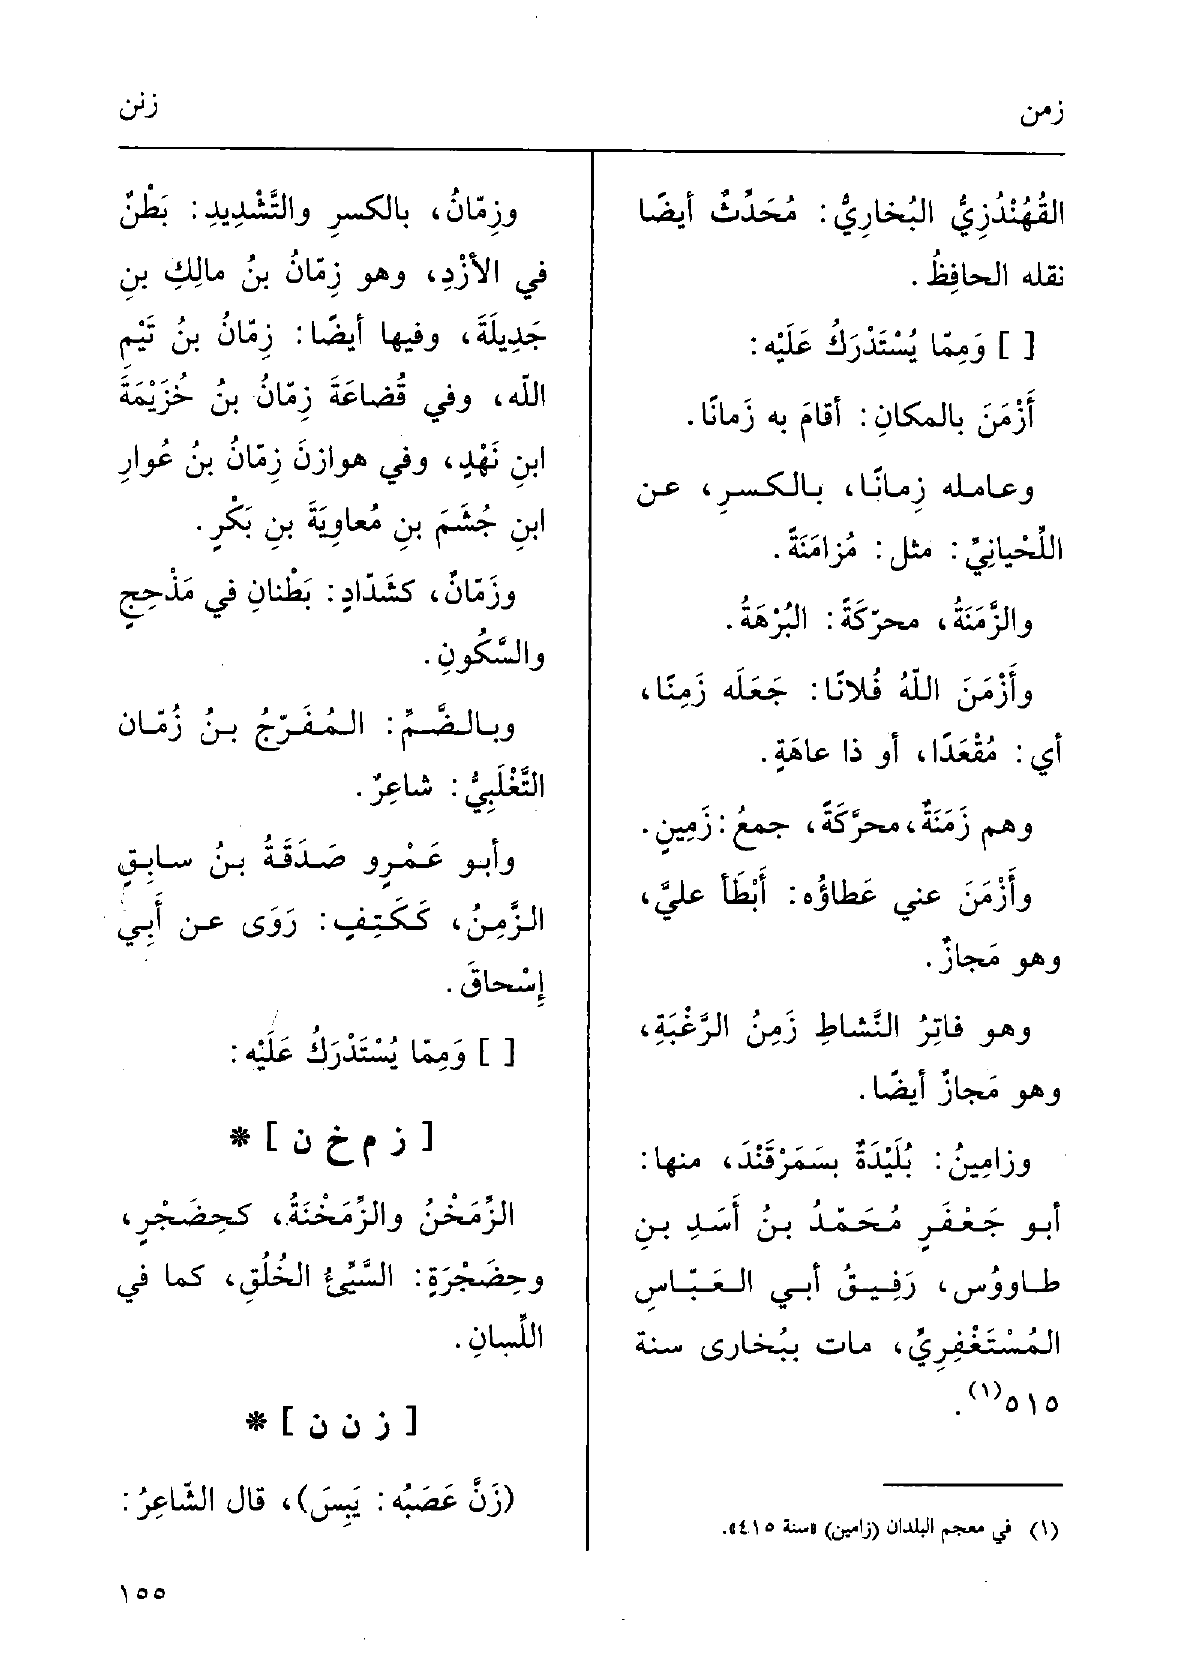 زمن
زنن
القُهُنْدُزِيُّ البُخارِيُّ: مُحَدِّثٌ أيضًا
نقله الحافِظُ.
[ ] وَمِمّا يُسْتَدْرَكُ عَلَيْه:
أَزْمَنَ بالمكانِ: أقامَ به زَمانًا.
وعامله زِمانًا، بالكسرِ، عن
اللِّحْيانِيِّ: مثل: مُزامَنَةً.
والزَّمَنَةُ، محرّكَةً: البُرْهَةُ.
وأَزْمَنَ اللّهُ فُلانًا: جَعَلَه زَمِنًا،
أي: مُقْعَدًا، أو ذا عاهَةٍ.
وهم زَمَنَةٌ، محرَّكَةً، جمعُ: زَمِينٍ.
وأَزْمَنَ عني عَطاؤُه: أَبْطَأَ عليَّ،
وهو مَجازٌ.
وهو فاتِرُ النَّشاطِ زَمِنُ الرَّغْبَةِ،
وهو مَجازٌ أيضًا.
وزامِينُ: بُلَيْدَةٌ بسَمَرْقَنْدَ، منها:
أبو جَعْفَرٍ مُحَمّدُ بنُ أَسَدِ بنِ
طاووُس، رَفِيقُ أبي العَبّاسِ
المُسْتَغْفِرِيِّ، مات ببُخارى سنة
٥١٥(١).
(١) في معجم البلدان (زامين) «سنة ٤١٥».
وزِمّانُ، بالكسرِ والتَّشْدِيدِ: بَطْنٌ
في الأَزْدِ، وهو زِمّانُ بنُ مالِكِ بنِ
جَدِيلَةَ، وفيها أيضًا: زِمّانُ بنُ تَيْمِ
اللّه، وفي قُضاعَةَ زِمّانُ بنُ خُزَيْمَةَ
ابنِ نَهْدٍ، وفي هوازنَ زِمّانُ بنُ عُوارِ
ابنِ جُشَمَ بنِ مُعاوِيَةَ بنِ بَكْرٍ.
وزَمّانٌ، كشَدّادٍ: بَطْنانِ في مَذْحِجٍ
والسَّكُونِ.
وبالضَّمِّ: المُفَرّجُ بنُ زُمّان
التَّغْلَبِيُّ: شاعِرٌ.
وأبو عَمْرٍو صَدَقَةُ بنُ سابِقٍ
الزَّمِنُ، كَكَتِفٍ: رَوَى عن أَبِي
إِسْحاقَ.
[ ] وَمِمّا يُسْتَدْرَكُ عَلَيْه:
[ ز م خ ن ] *
الزِّمَخْنُ والزِّمَخْنَةُ، كحِضَجْرٍ،
وحِضَجْرَةٍ: السَّيِّئُ الخُلُقِ، كما في
اللِّسانِ.
[ ز ن ن ] *
(زَنَّ عَصَبُه: يَبِسَ)، قال الشّاعِرُ:
١٥٥